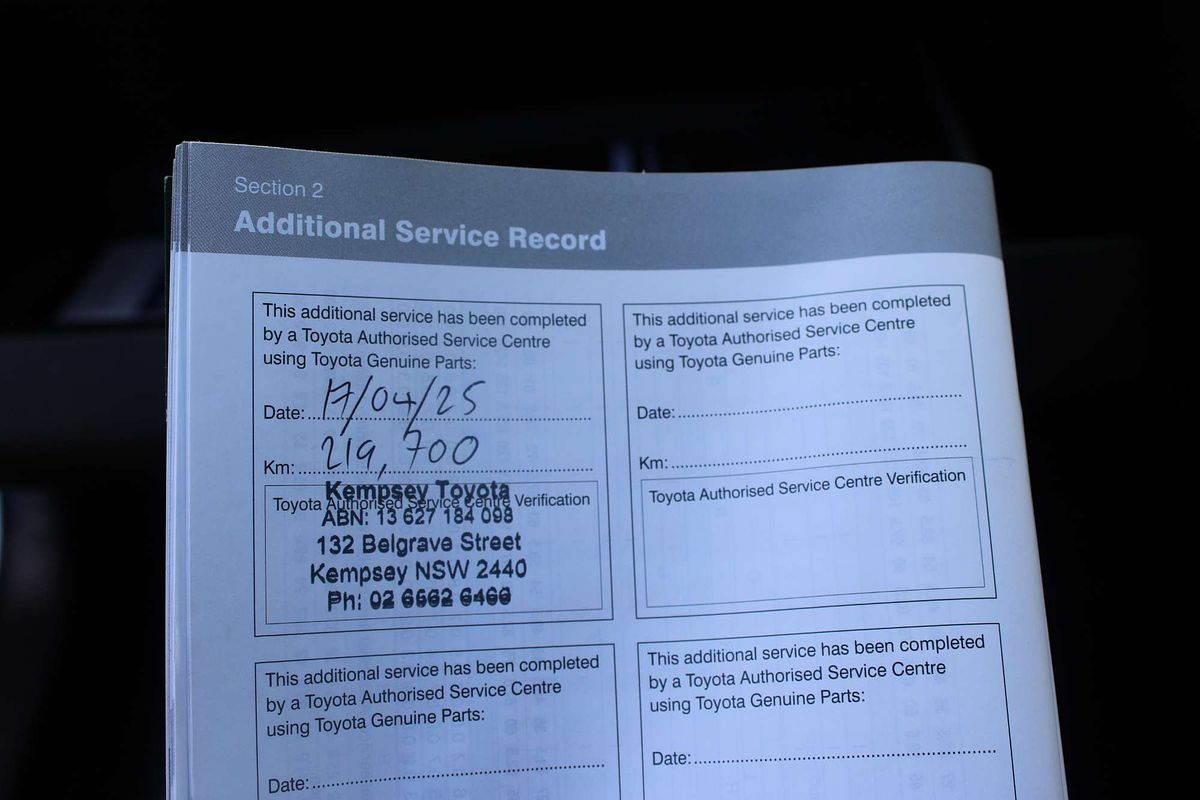 Section 2
Additional Service Record
This additional service has been completed
by a Toyota Authorised Service Centre
using Toyota Genuine Parts:
Date: 17/04/25
Km: 219,700
Toyota Authorised Service Centre Verification
Kempsey Toyota
ABN: 13 627 184 098
132 Belgrave Street
Kempsey NSW 2440
Ph: 02 6562 6466
This additional service has been completed
by a Toyota Authorised Service Centre
using Toyota Genuine Parts:
Date:
Km:
Toyota Authorised Service Centre Verification
This additional service has been completed
by a Toyota Authorised Service Centre
using Toyota Genuine Parts:
Date:
This additional service has been completed
by a Toyota Authorised Service Centre
using Toyota Genuine Parts:
Date: